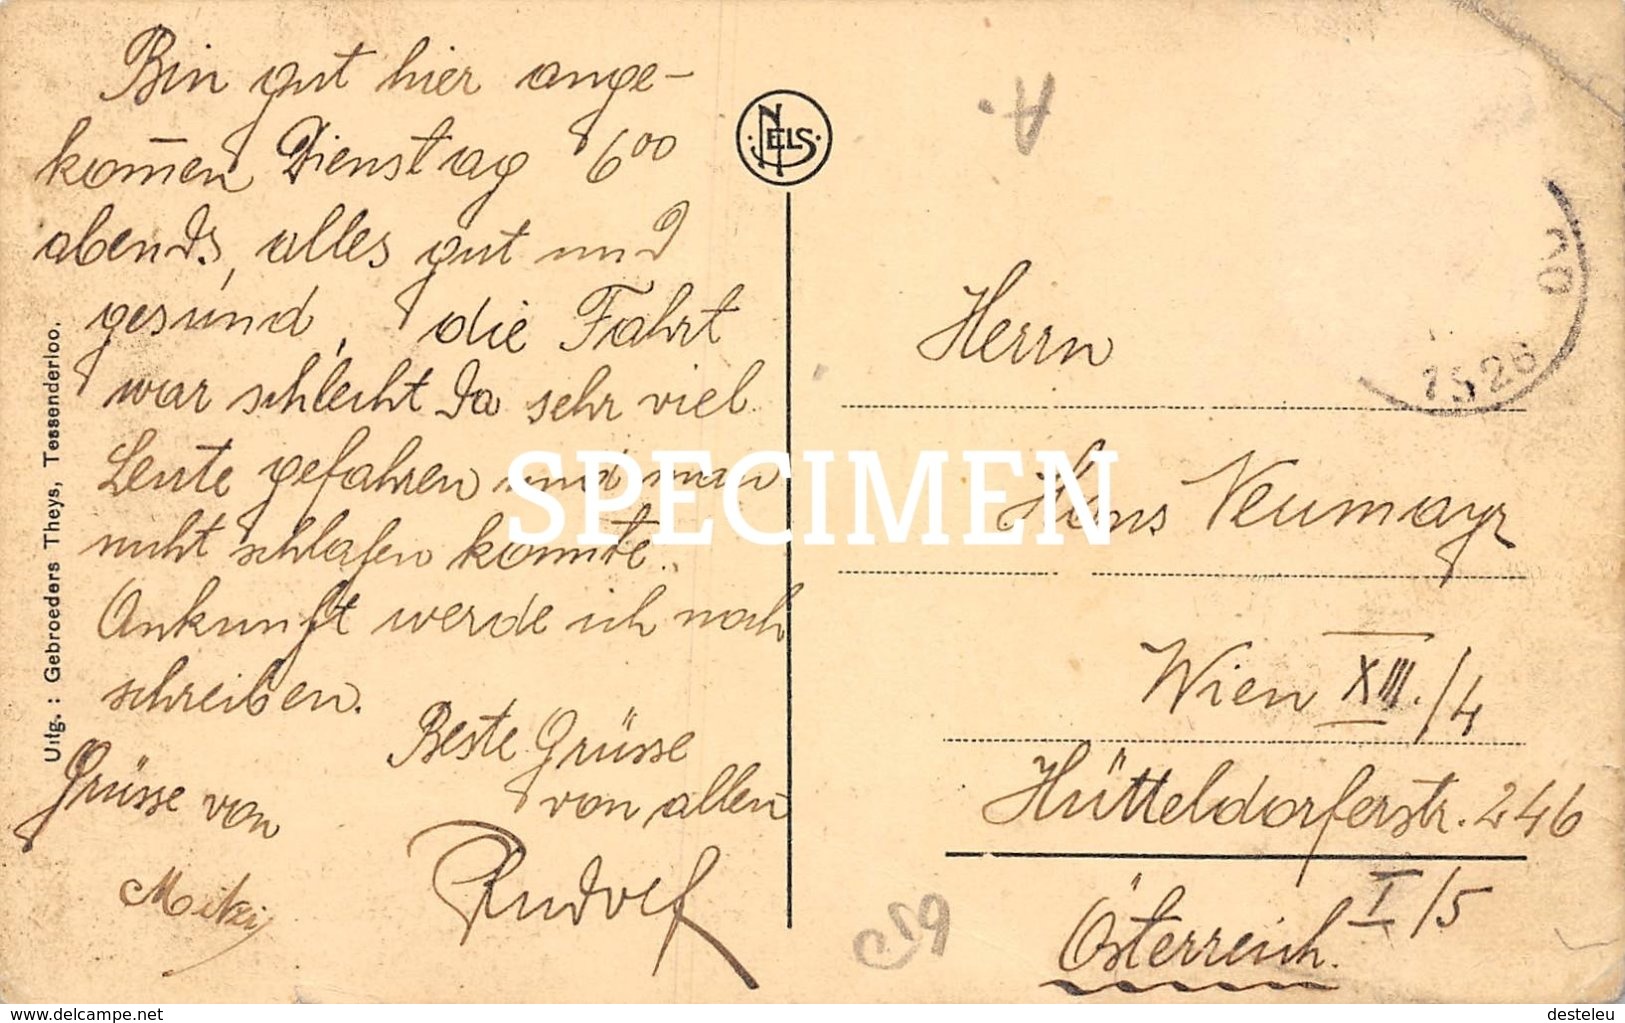 Bin gut hier ange-
kom̅en Dienstag 6⁰⁰
abends, alles gut und
gesund, die Fahrt
war schlecht da sehr viel
Leute gefahren und man
nicht schlafen konnte.
Ankunft werde ich noch
schreiben.
Beste Grüsse
von allen
Rudolf
Grüsse von
Mitzi
Uitg. : Gebroeders Theys, Tessenderloo.
NELS
A.
1926
Herrn
Hans Neumayr
Wien XIII./4
Hütteldorferstr. 246
I/5
Österreich.
SPECIMEN
www.delcampe.net
desteleu